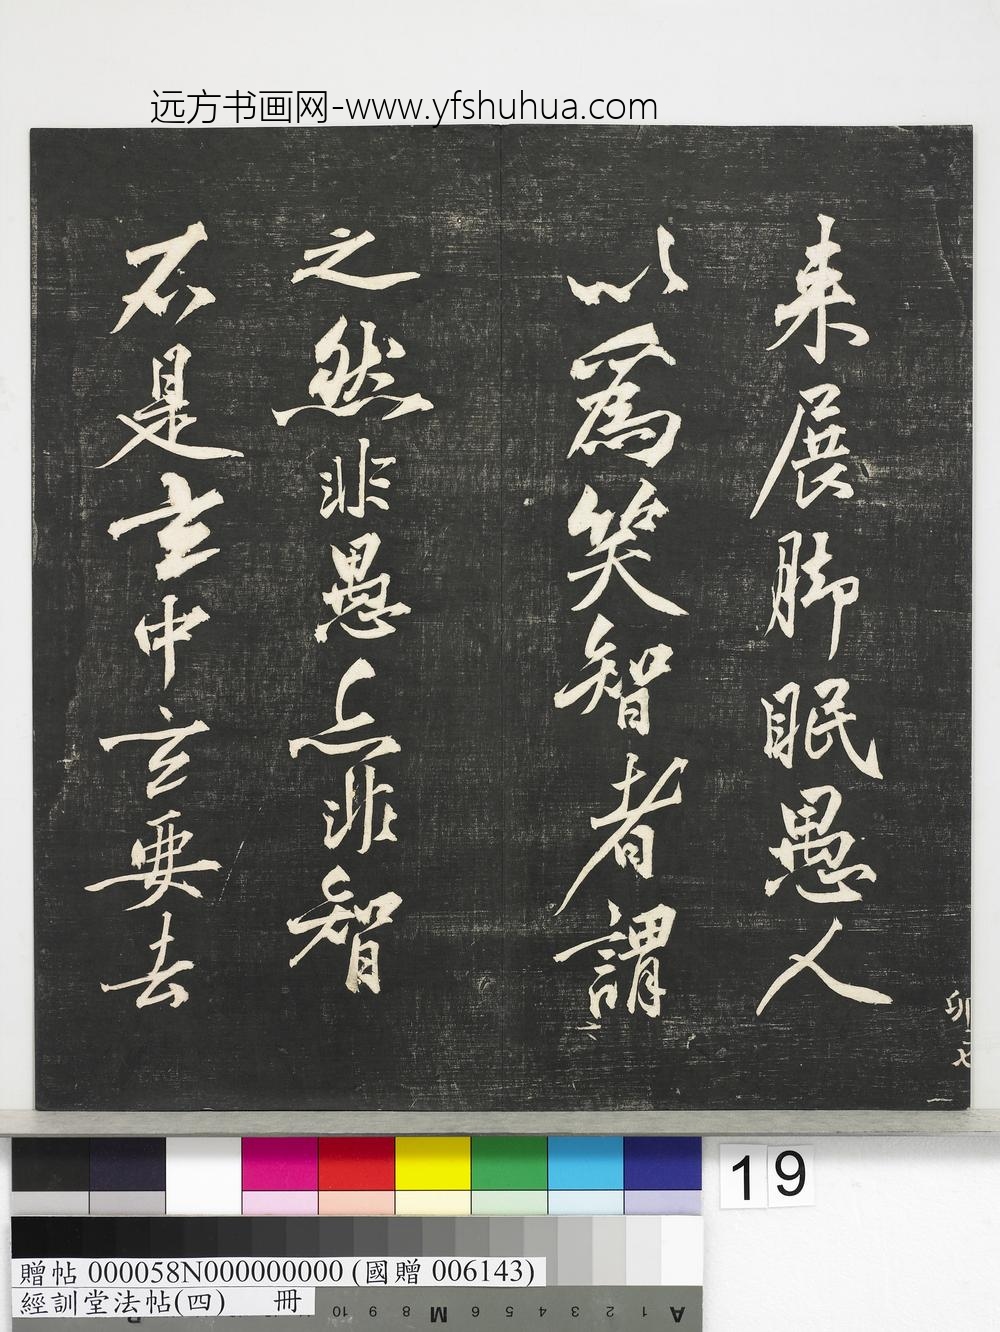 远方书画网-www.yfshuhua.com
来展脚眠愚人
以為笑智者謂
之然非愚亦非智
不是玄中玄要去
19
贈帖 000058N000000000 (國贈 006143)
經訓堂法帖(四) 冊
A 1 2 3 4 5 6 M 8 9 10